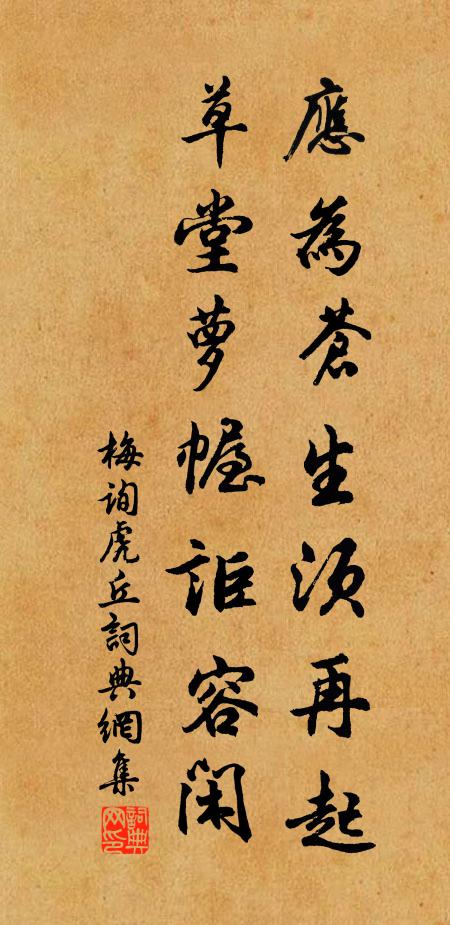 應為蒼生須再起
草堂蘿幄詎容閑
梅詢虎丘詞典網集
詞典網印